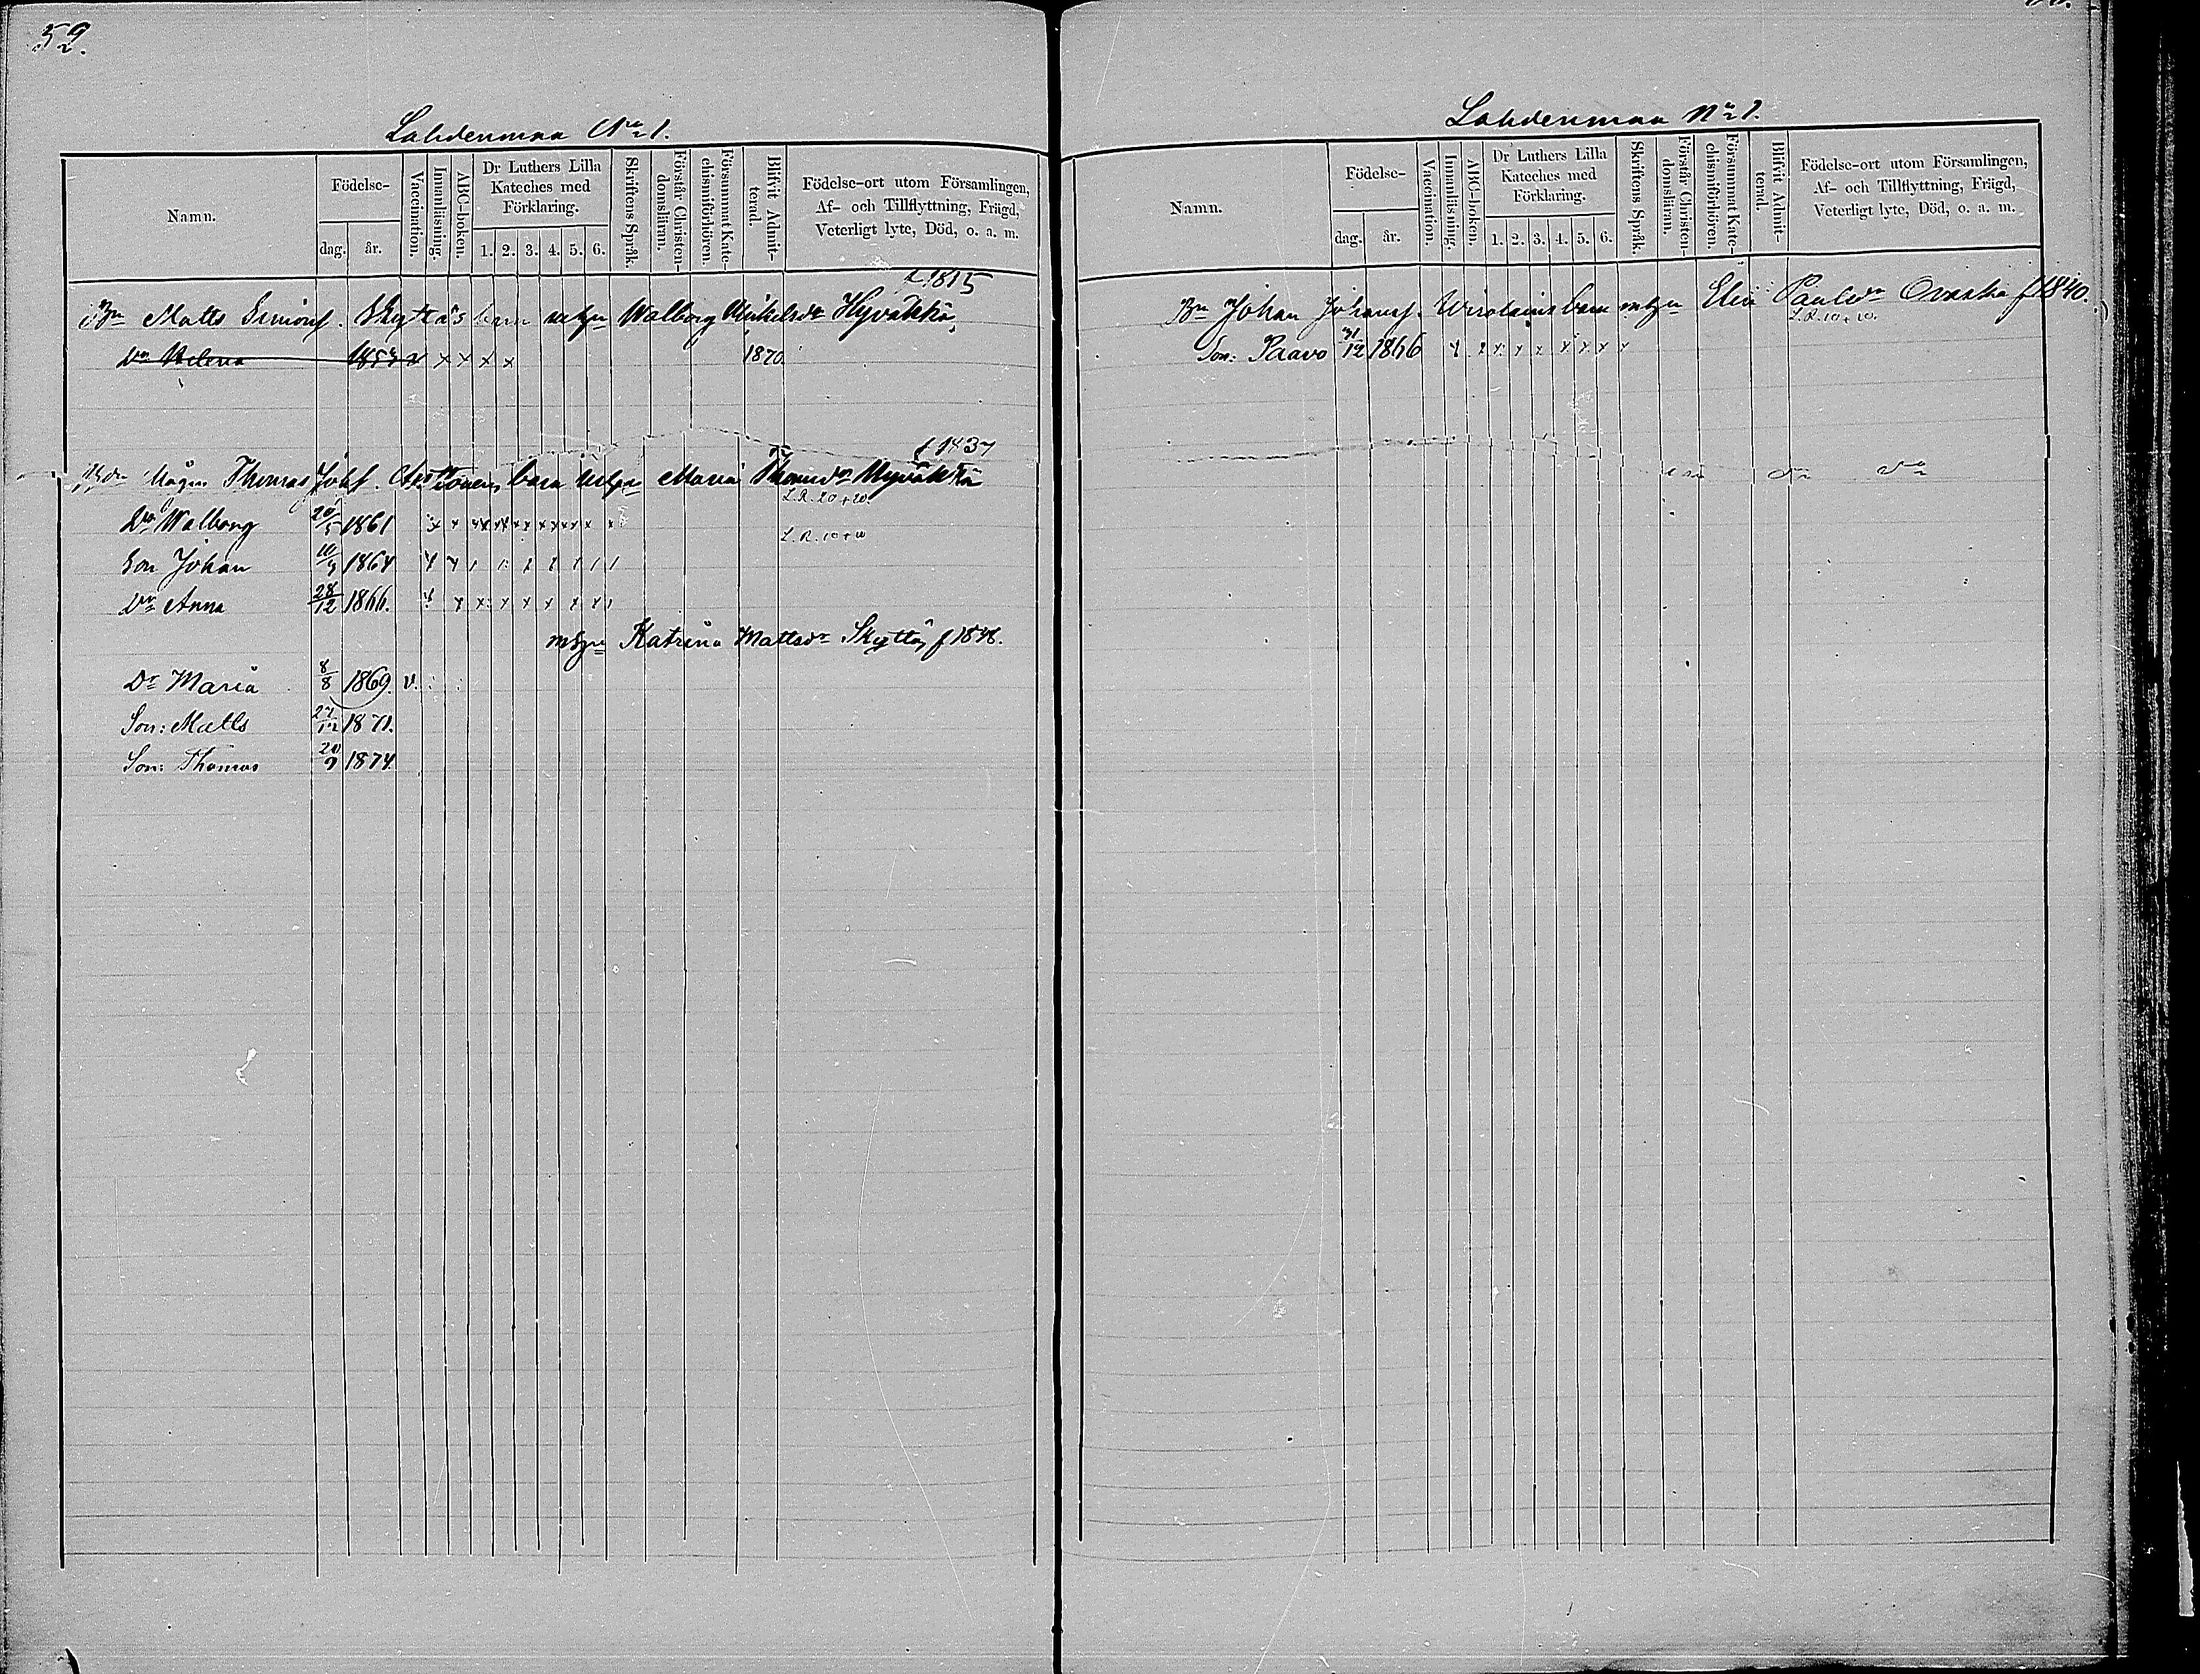 52.
Lahdenmaa No 1.
Namn.
Födelse-
dag. år.
Vaccination.
Innanläsning.
ABC-boken.
Dr Luthers Lilla
Kateches med
Förklaring.
1. 2. 3. 4. 5. 6.
Skriftens Språk.
Förstår Christen-
domsläran.
Försummat Kate-
chismiförhören.
Blifvit Admit-
terad.
Födelse-ort utom Församlingen,
Af- och Tillflyttning, Frägd,
Veterligt lyte, Död, o. a. m.
f. 1815
Bn Matts Simonss. Skyttä's barn m hn Walborg Mickelsdr Hyväkkä
Dr Helena 1853 v x x x x 1870.
f 1837
Mågen Thomas Johss. barn m hn Maria Thomsdr Hyväkkä
L.R. 20+20.
Dr Walborg 20/5 1861
L.R. 10+10
Son Johan 10/9 1864
Dr Anna 28/12 1866.
m hn Katrina Mattsdr Skyttä, f 1848.
Dr Maria 8/8 1869. v.
Son: Matts 27/12 1871.
Son: Thomas 20/9 1874.
Lahdenmaa No 1.
Namn.
Födelse-
dag. år.
Vaccination.
Innanläsning.
ABC-boken.
Dr Luthers Lilla
Kateches med
Förklaring.
1. 2. 3. 4. 5. 6.
Skriftens Språk.
Förstår Christen-
domsläran.
Försummat Kate-
chismiförhören.
Blifvit Admit-
terad.
Födelse-ort utom Församlingen,
Af- och Tillflyttning, Frägd,
Veterligt lyte, Död, o. a. m.
Bn Johan Johanss. Wirolainens barn m hn Elin Paulsdr Ovaska f 1840.
L.R. 10+10.
Son: Paavo 31/12 1866